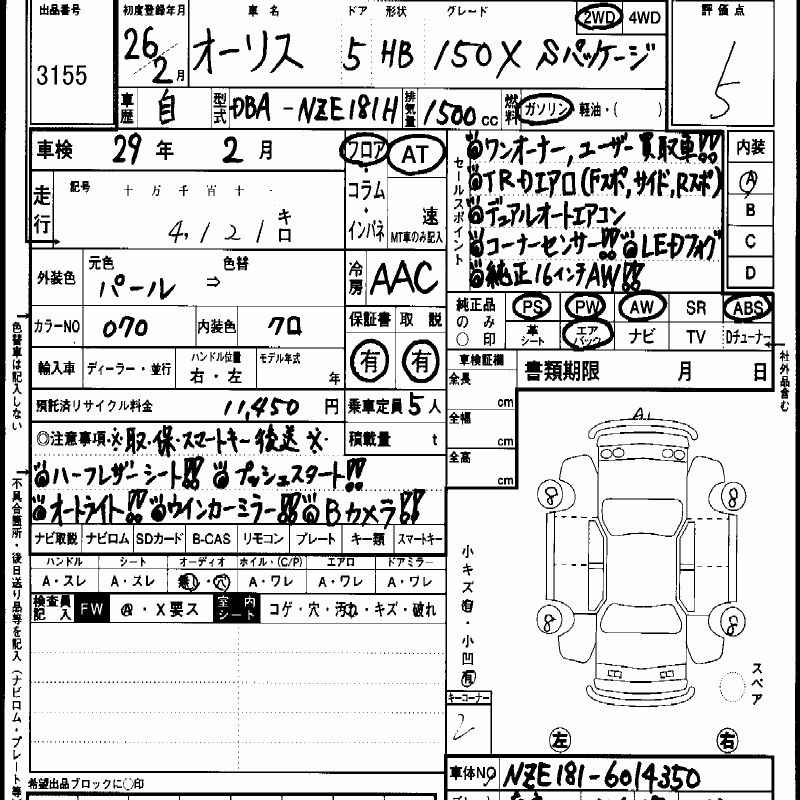 出品番号 初度登録年月 車名 ドア 形状 グレード 2WD 4WD 評価点
3155 26年2月 オーリス 5 HB 150X Sパッケージ 5
車歴 自 型式 DBA-NZE181H 排気量 1500cc 燃料 ガソリン・軽油・( )
車検 29年 2月 フロア・コラム・インパネ AT 速 MT車のみ記入
走行 記号 十 万 千 百 十 ・
4,121 キロ
セールスポイント
ワンオーナー,ユーザー買取車!!
TRDエアロ(Fスポ,サイド,Rスポ)
デュアルオートエアコン
コーナーセンサー!! LEDフォグ
純正16インチAW!!
内装
A
B
C
D
外装色 元色 パール ⇒ 色替 冷房 AAC
カラーNO 070 内装色 クロ 保証書 有 取説 有
純正品のみ〇印 PS PW AW SR ABS
革シート エアバック ナビ TV Dチューナー
輸入車 ディーラー・並行 ハンドル位置 右・左 モデル年式 年
車検証欄 書類期限 月 日
全長 cm
全幅 cm
全高 cm
預託済リサイクル料金 11,450円 乗車定員 5人
◎注意事項・※取・保・スマートキー後送※ 積載量 t
ハーフレザーシート!! プッシュスタート!!
オートライト!! ウインカーミラー!! Bカメラ!!
ナビ取説 ナビロム SDカード B-CAS リモコン プレート キー類 スマートキー
ハンドル シート オーディオ ホイル・(C/P) エアロ ドアミラー
A・スレ A・スレ 無し・穴 A・ワレ A・ワレ A・ワレ
検査員記入 FW A・X要ス 室内シート コゲ・穴・汚れ・キズ・破れ
A1
8 8
8 8
小キズ有・小凹有
スペア
キーコーナー
2
左 右
車体NO NZE181-6014350
希望出品ブロックに〇印
色替車は記入しない
不具合箇所・後日送り品等を記入(ナビロム・プレート等
社外品含む